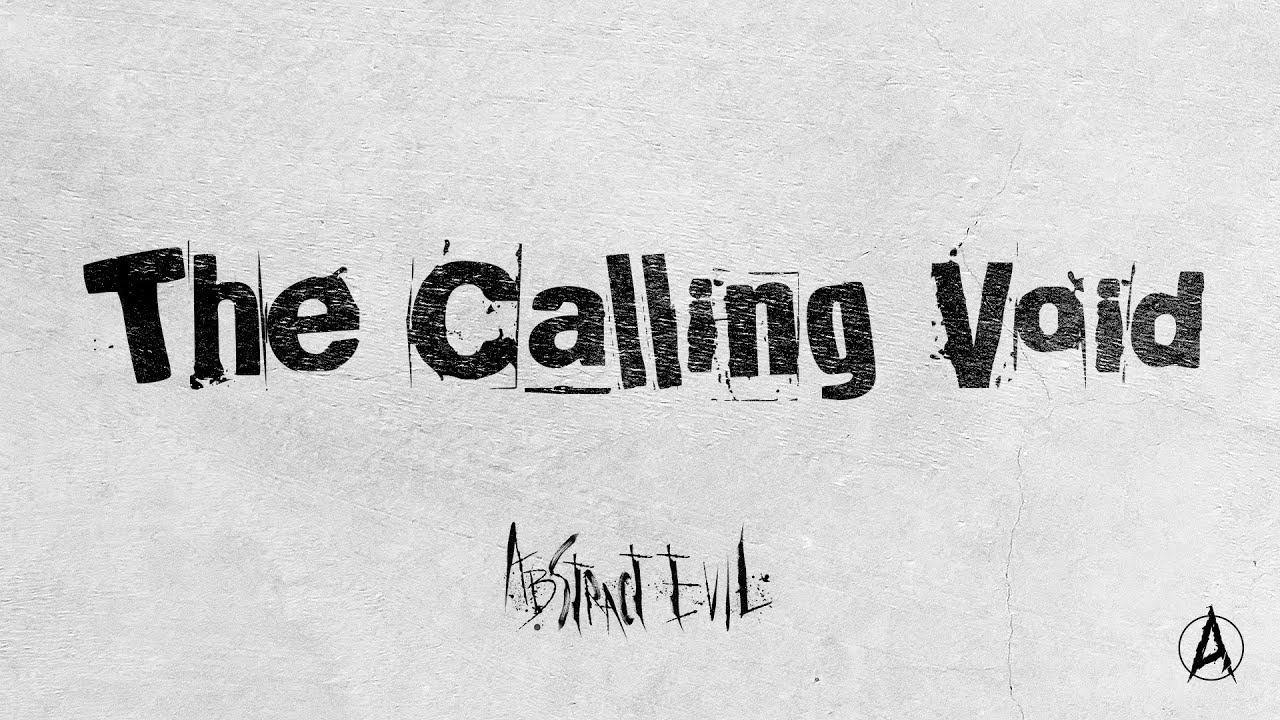 The Calling Void
ABSTRACT EVIL
A